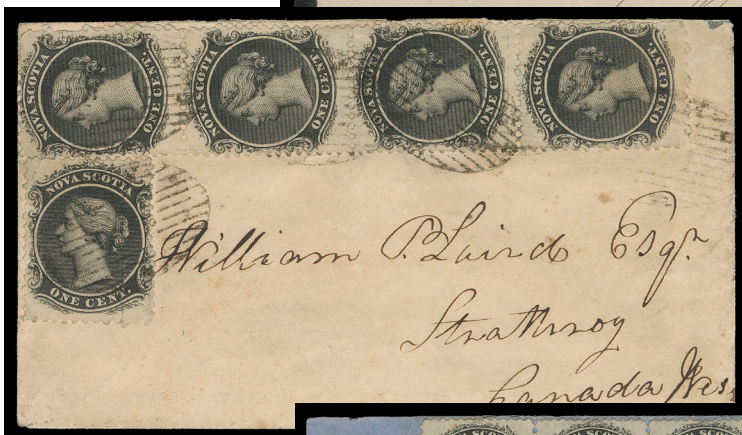 NOVA SCOTIA ONE CENT.
NOVA SCOTIA ONE CENT.
NOVA SCOTIA ONE CENT.
NOVA SCOTIA ONE CENT.
NOVA SCOTIA
ONE CENT.
William P. Laird Esqr.
Strathroy
Canada Wes
NOVA SCOTIA